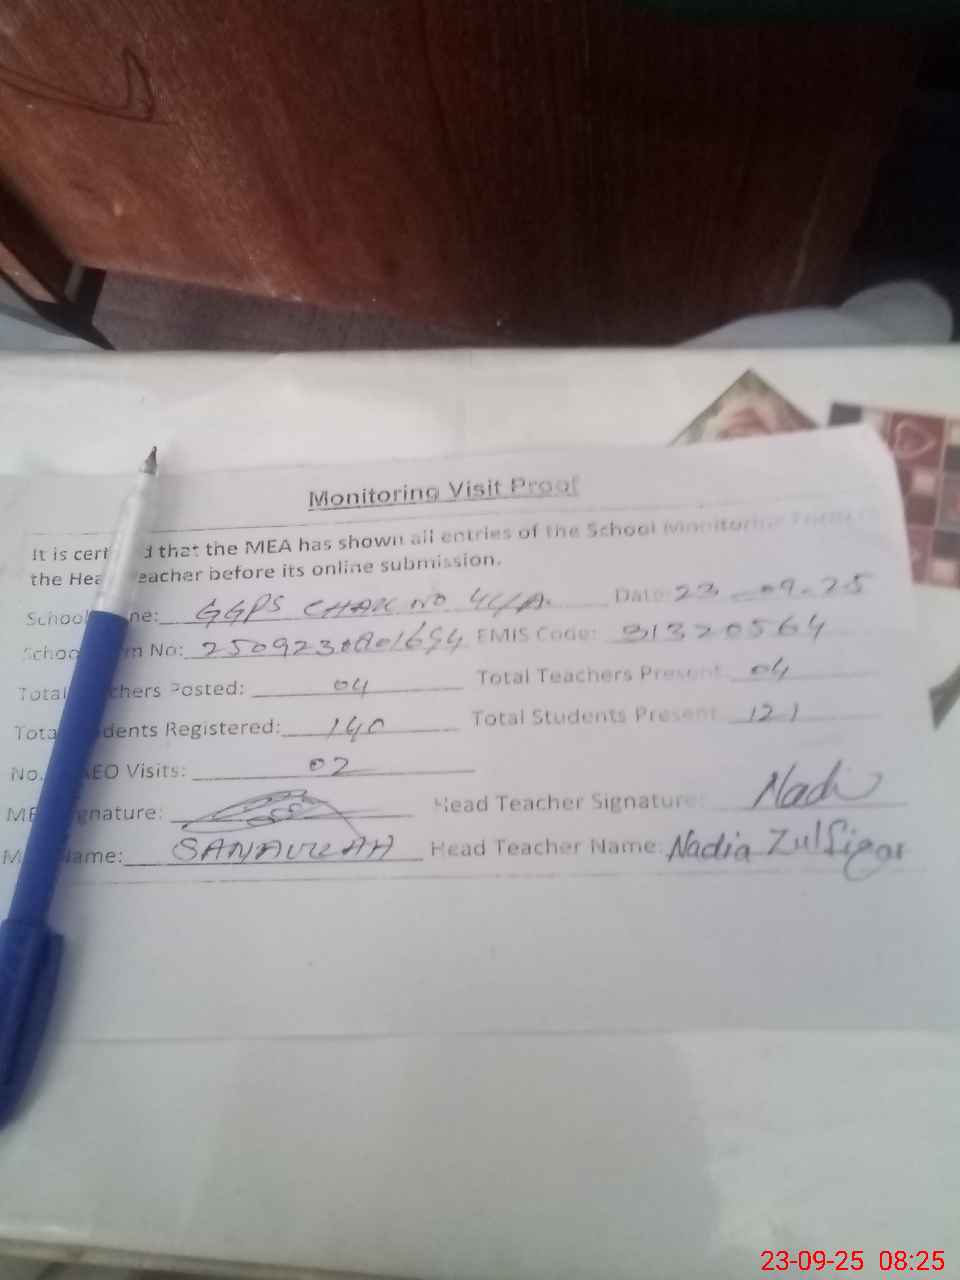 Monitoring Visit Proof
It is cert d that the MEA has shown all entries of the School Monitoring Form to
the Hea eacher before its online submission.
School ne: GGPS CHAK NO Date: 23-09-25
Schoo m No: EMIS Code: 31320564
Total chers Posted: 04 Total Teachers Present: 04
Tota dents Registered: 140 Total Students Present: 121
No. AEO Visits: 02
ME gnature: Head Teacher Signature: Nadi
M Name: SANAULLAH Head Teacher Name: Nadia Zulfiqar
23-09-25 08:25